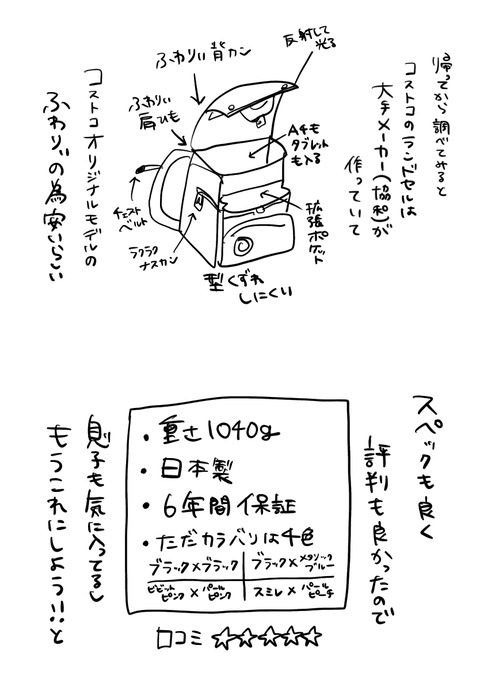 帰ってから調べてみると
コストコのランドセルは
大手メーカー(協和)が
作っていて
反射して
光る
ふわりぃ背カン
ふわりぃ
肩ひも
A4も
タブレット
も入る
拡張ポケット
チェスト
ベルト
ラクラク
ナスカン
型くずれ
しにくい
コストコオリジナルモデルの
ふわりぃの為安いらしい
スペックも良く
評判も良かったので
・重さ1040g
・日本製
・6年間保証
・ただカラバリは4色
ブラック×ブラック
ブラック×メタリックブルー
ビビットピンク×パールピンク
スミレ×パールピーチ
口コミ ☆☆☆☆☆
息子も気に入ってるし
もうこれにしよう!!と